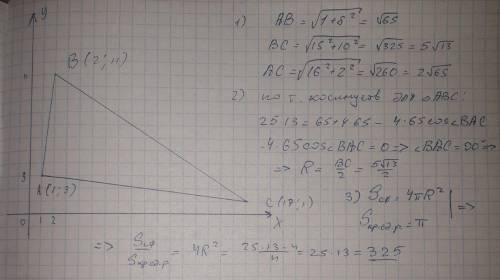 y
B(2;11)
11
3
A(1;3)
C(17;1)
0
1 2
X
1) AB = √(1+8²) = √65
BC = √(15²+10²) = √325 = 5√13
AC = √(16²+2²) = √260 = 2√65
2) по т. косинусов для △ABC:
25·13 = 65+4·65 - 4·65cos∠BAC
-4·65cos∠BAC = 0 => ∠BAC = 90° =>
=> R = BC/2 = 5√13/2
3) Sсф = 4πR²
Sкр.ед.р = π | =>
=> Sсф/Sкр.ед.р = 4R² = 25·13·4/4 = 25·13 = 325